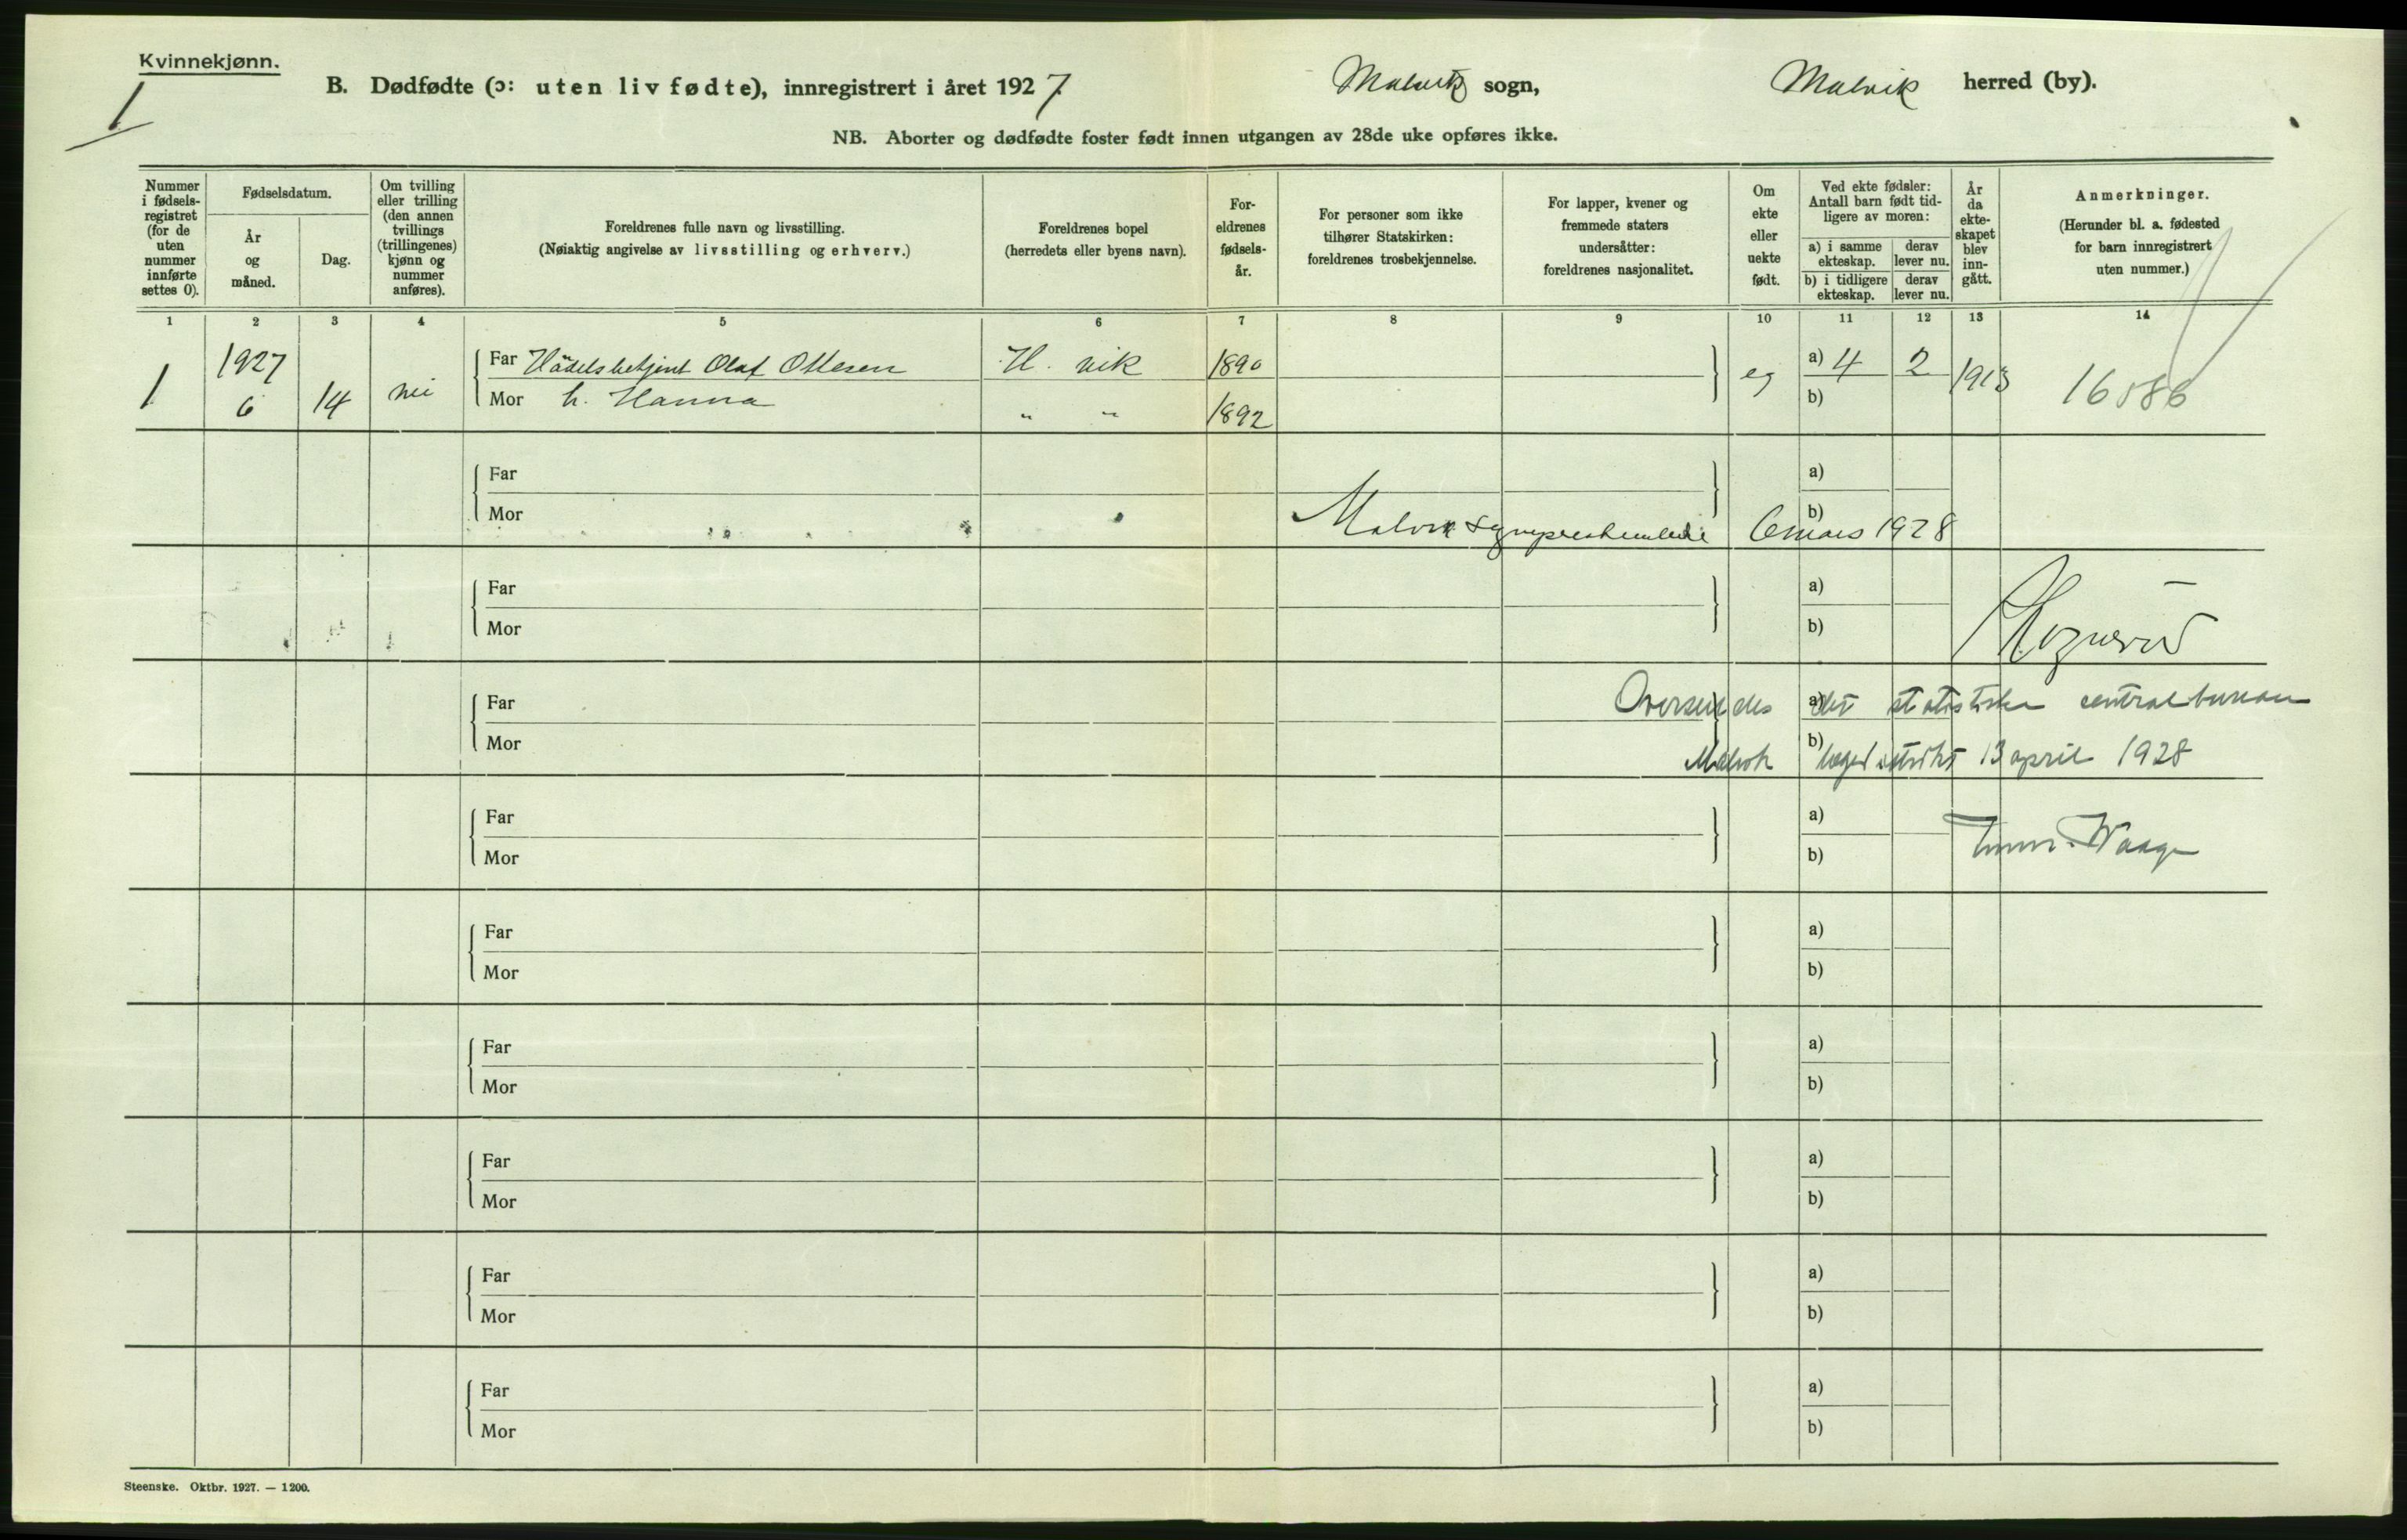 Kvinnekjønn.
1
B. Dødfødte (ɔ: uten liv fødte), innregistrert i året 1927. Malvik sogn, Malvik herred (by).
NB. Aborter og dødfødte foster født innen utgangen av 28de uke opføres ikke.
Nummer i fødsels- registret (for de uten nummer innførte settes 0).
Fødselsdatum.
År og måned.
Dag.
Om tvilling eller trilling (den annen tvillings (trillingenes) kjønn og nummer anføres).
Foreldrenes fulle navn og livsstilling.
(Nøiaktig angivelse av livsstilling og erhverv.)
Foreldrenes bopel
(herredets eller byens navn).
For- eldrenes fødsels- år.
For personer som ikke tilhører Statskirken: foreldrenes trosbekjennelse.
For lapper, kvener og fremmede staters undersåtter: foreldrenes nasjonalitet.
Om ekte eller uekte født.
Ved ekte fødsler: Antall barn født tid- ligere av moren:
a) i samme ekteskap.
derav lever nu.
b) i tidligere ekteskap.
derav lever nu.
År da ekte- skapet blev inn- gått.
Anmerkninger.
(Herunder bl. a. fødested for barn innregistrert uten nummer.)
1 2 3 4 5 6 7 8 9 10 11 12 13 14
1 1927 6 14 nei
Far Olaf Ottesen H.vik 1890
Mor h. Hanna " " 1892
eg a) 4 2 1913 16586
b)
Far a)
Mor b)
Malvik 6 mars 1928
Far a)
Mor b)
Far a)
Oversendes det statistiske centralbureau
Mor b)
Malvik legedistrikt 13 april 1928
Far a)
Waage
Mor b)
Far a)
Mor b)
Far a)
Mor b)
Far a)
Mor b)
Far a)
Mor b)
Far a)
Mor b)
Steenske. Oktbr. 1927. — 1200.